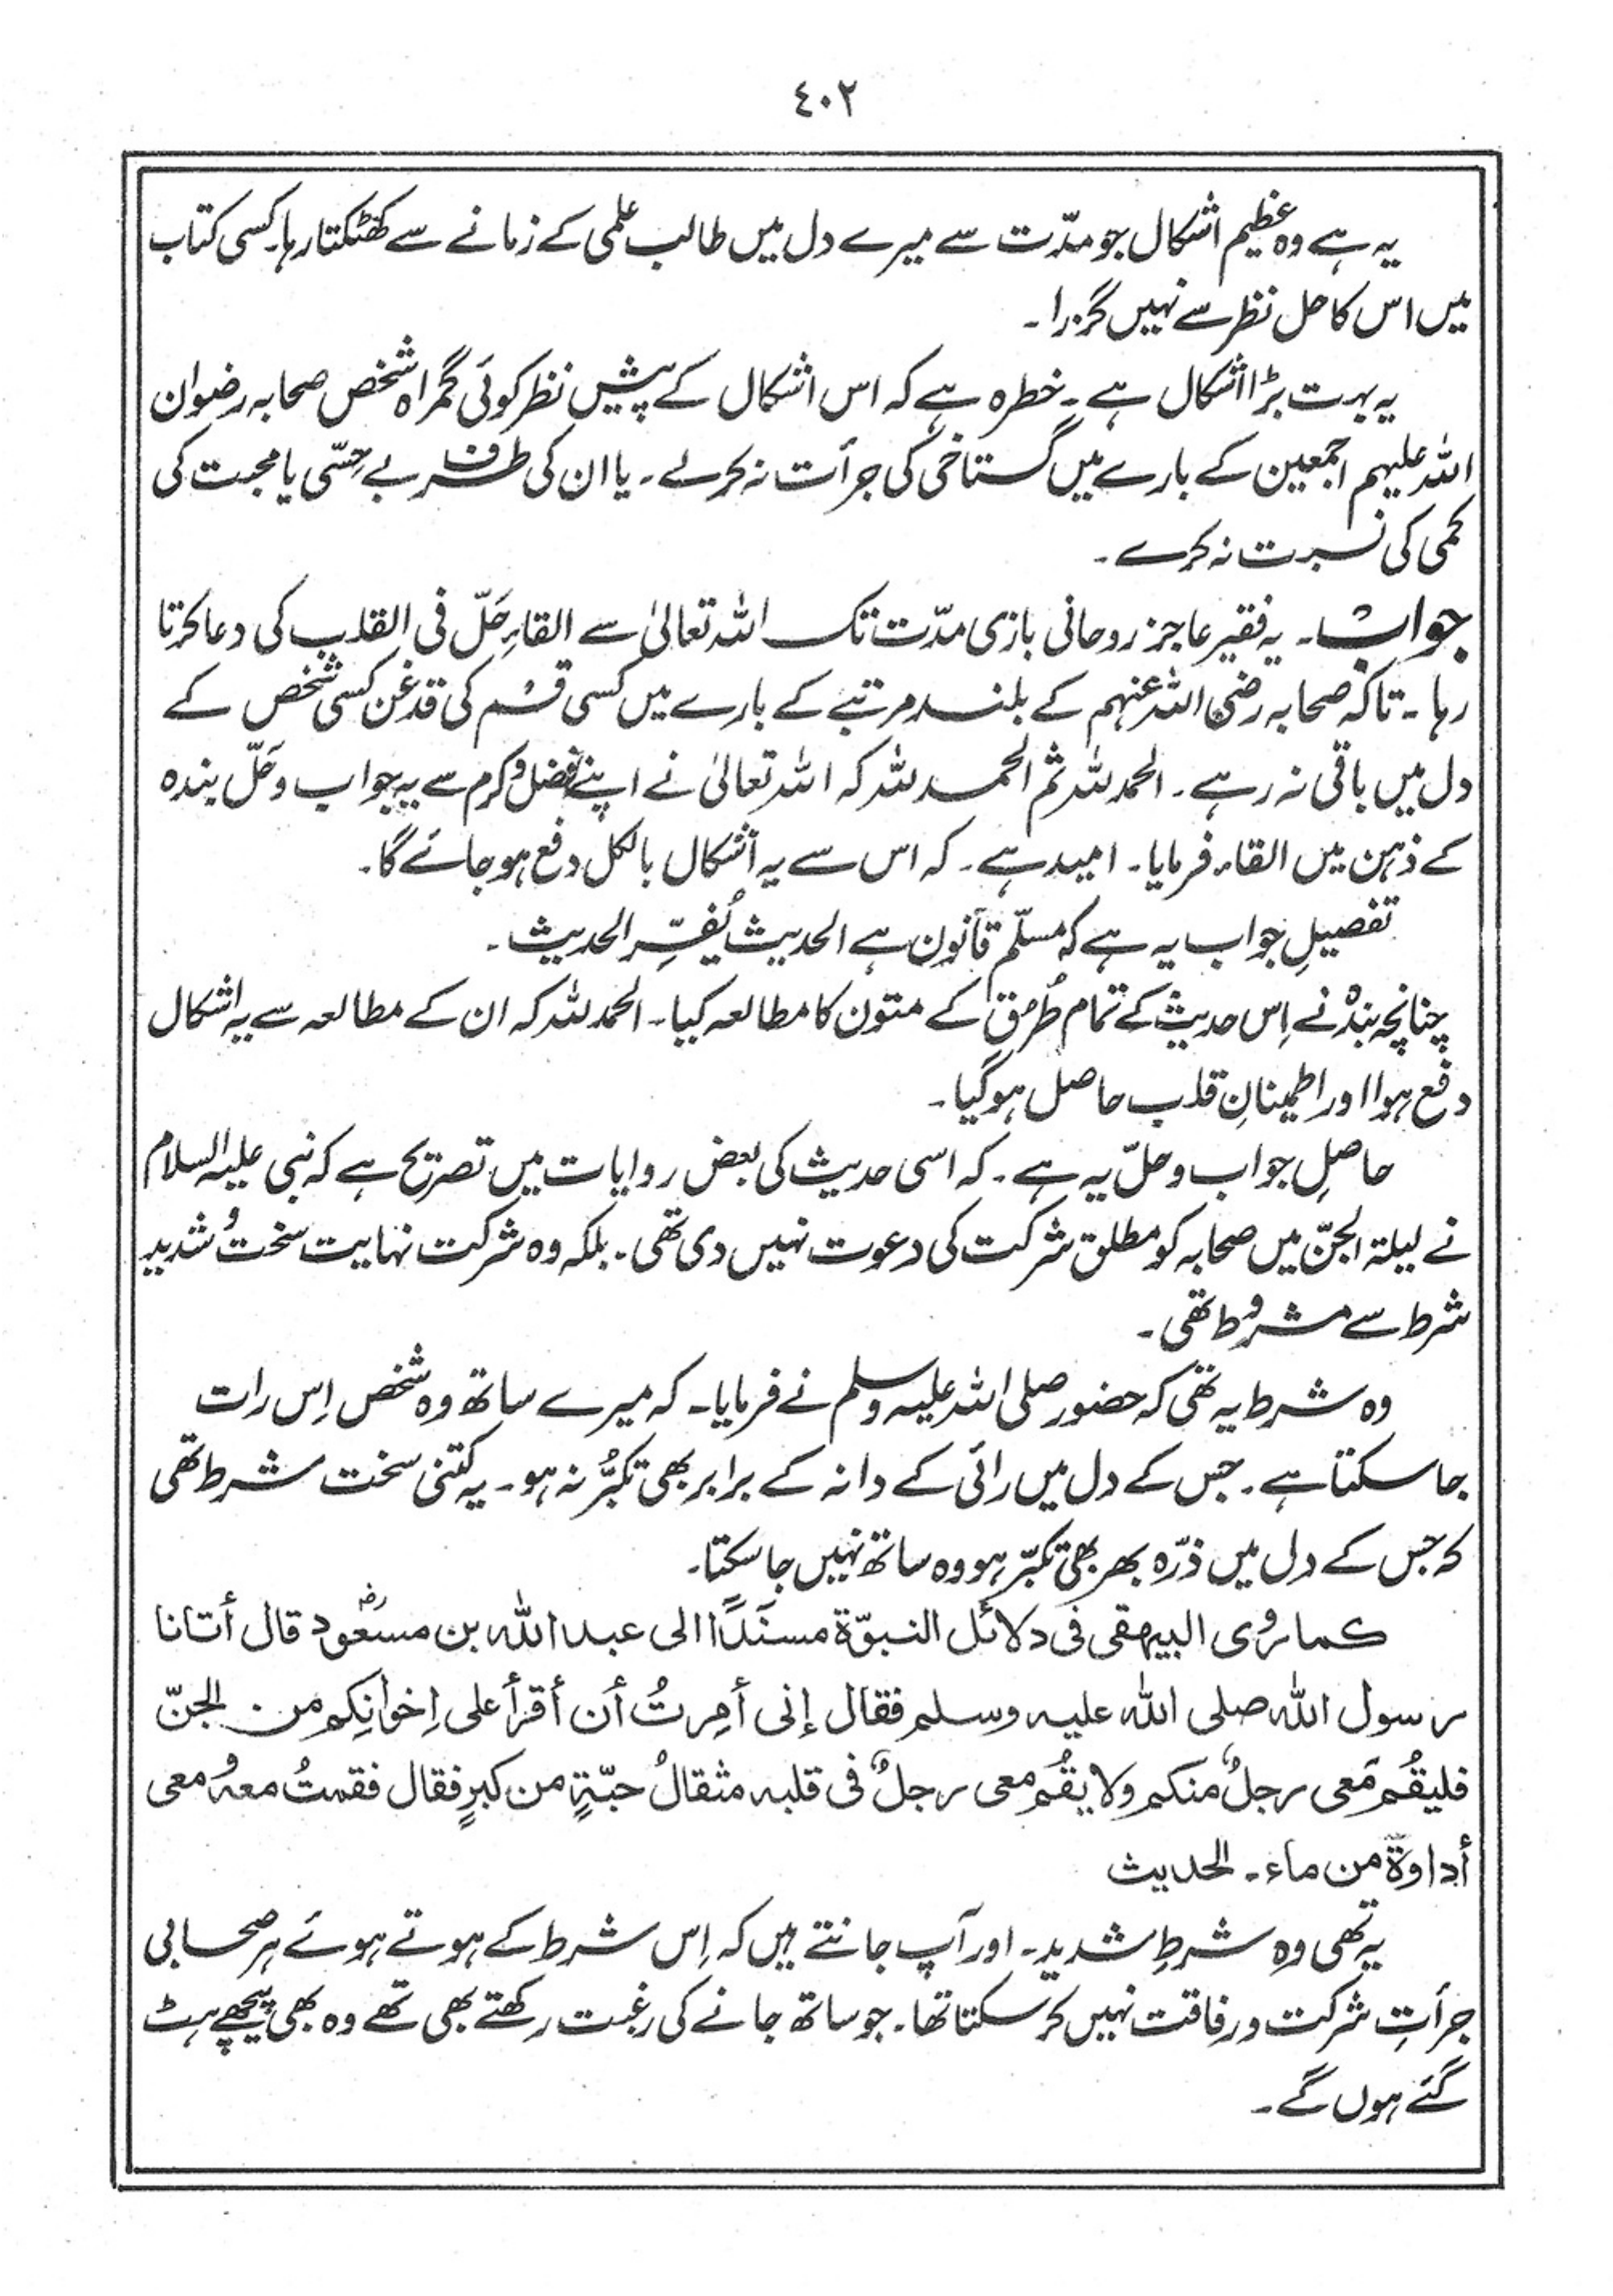 ٤٠٢
یہ ہے وہ عظیم اشکال جو مدّت سے میرے دل میں طالب علمی کے زمانے سے کھٹکتا رہا۔ کسی کتاب
میں اس کا حل نظر سے نہیں گزرا۔
یہ بہت بڑا اشکال ہے۔ خطرہ ہے کہ اس اشکال کے پیش نظر کوئی گمراہ شخص صحابہ رضوان
اللہ علیہم اجمعین کے بارے میں گستاخی کی جرأت نہ کرلے۔ یا ان کی طرف بے حِسّی یا محبت کی
کمی کی نسبت نہ کرے۔
جواب۔ یہ فقیر عاجز روحانی بازی مدّت تک اللہ تعالیٰ سے القاءِ حَلّ فی القلب کی دعا کرتا
رہا۔ تاکہ صحابہ رضی اللہ عنہم کے بلند مرتبے کے بارے میں کسی قسم کی قدغن کسی شخص کے
دل میں باقی نہ رہے۔ الحمد للہ ثم الحمد للہ کہ اللہ تعالیٰ نے اپنے فضل و کرم سے یہ جواب و حَلّ بندہ
کے ذہن میں القاء فرمایا۔ امید ہے۔ کہ اس سے یہ اشکال بالکل دفع ہو جائے گا۔
تفصیلِ جواب یہ ہے کہ مسلّم قانون ہے الحدیث یُفسِّر الحدیث۔
چنانچہ بندہ نے اِس حدیث کے تمام طُرُق کے متون کا مطالعہ کیا۔ الحمد للہ کہ ان کے مطالعہ سے یہ اشکال
دفع ہوا اور اطمینانِ قلب حاصل ہو گیا۔
حاصلِ جواب و حلّ یہ ہے۔ کہ اسی حدیث کی بعض روایات میں تصریح ہے کہ نبی علیہ السلام
نے لیلۃ الجنّ میں صحابہ کو مطلق شرکت کی دعوت نہیں دی تھی۔ بلکہ وہ شرکت نہایت سخت و شدید
شرط سے مشروط تھی۔
وہ شرط یہ تھی کہ حضور صلی اللہ علیہ وسلم نے فرمایا۔ کہ میرے ساتھ وہ شخص اِس رات
جا سکتا ہے۔ جس کے دل میں رائی کے دانہ کے برابر بھی تکبُّر نہ ہو۔ یہ کتنی سخت شرط تھی
کہ جس کے دل میں ذرّہ بھر بھی تکبّر ہو وہ ساتھ نہیں جا سکتا۔
کما روی البیہقی فی دلائل النبوّۃ مسنَدًا الی عبد اللہ بن مسعود رضؓ قال أتانا
رسول اللہ صلی اللہ علیہ وسلم فقال إنی أمِرتُ أن أقرأ علی إخوانِکم من الجنّ
فلیقُم مَعی رجلٌ منکم ولا یقُم معی رجلٌ فی قلبہ مثقالُ حبّۃٍ من کبرٍ فقال فقمتُ معہ ومعی
أداوۃ من ماء۔ الحدیث
یہ تھی وہ شرطِ شدید۔ اور آپ جانتے ہیں کہ اِس شرط کے ہوتے ہوئے ہر صحابی
جرأتِ شرکت و رفاقت نہیں کر سکتا تھا۔ جو ساتھ جانے کی رغبت رکھتے بھی تھے وہ بھی پیچھے ہٹ
گئے ہوں گے۔